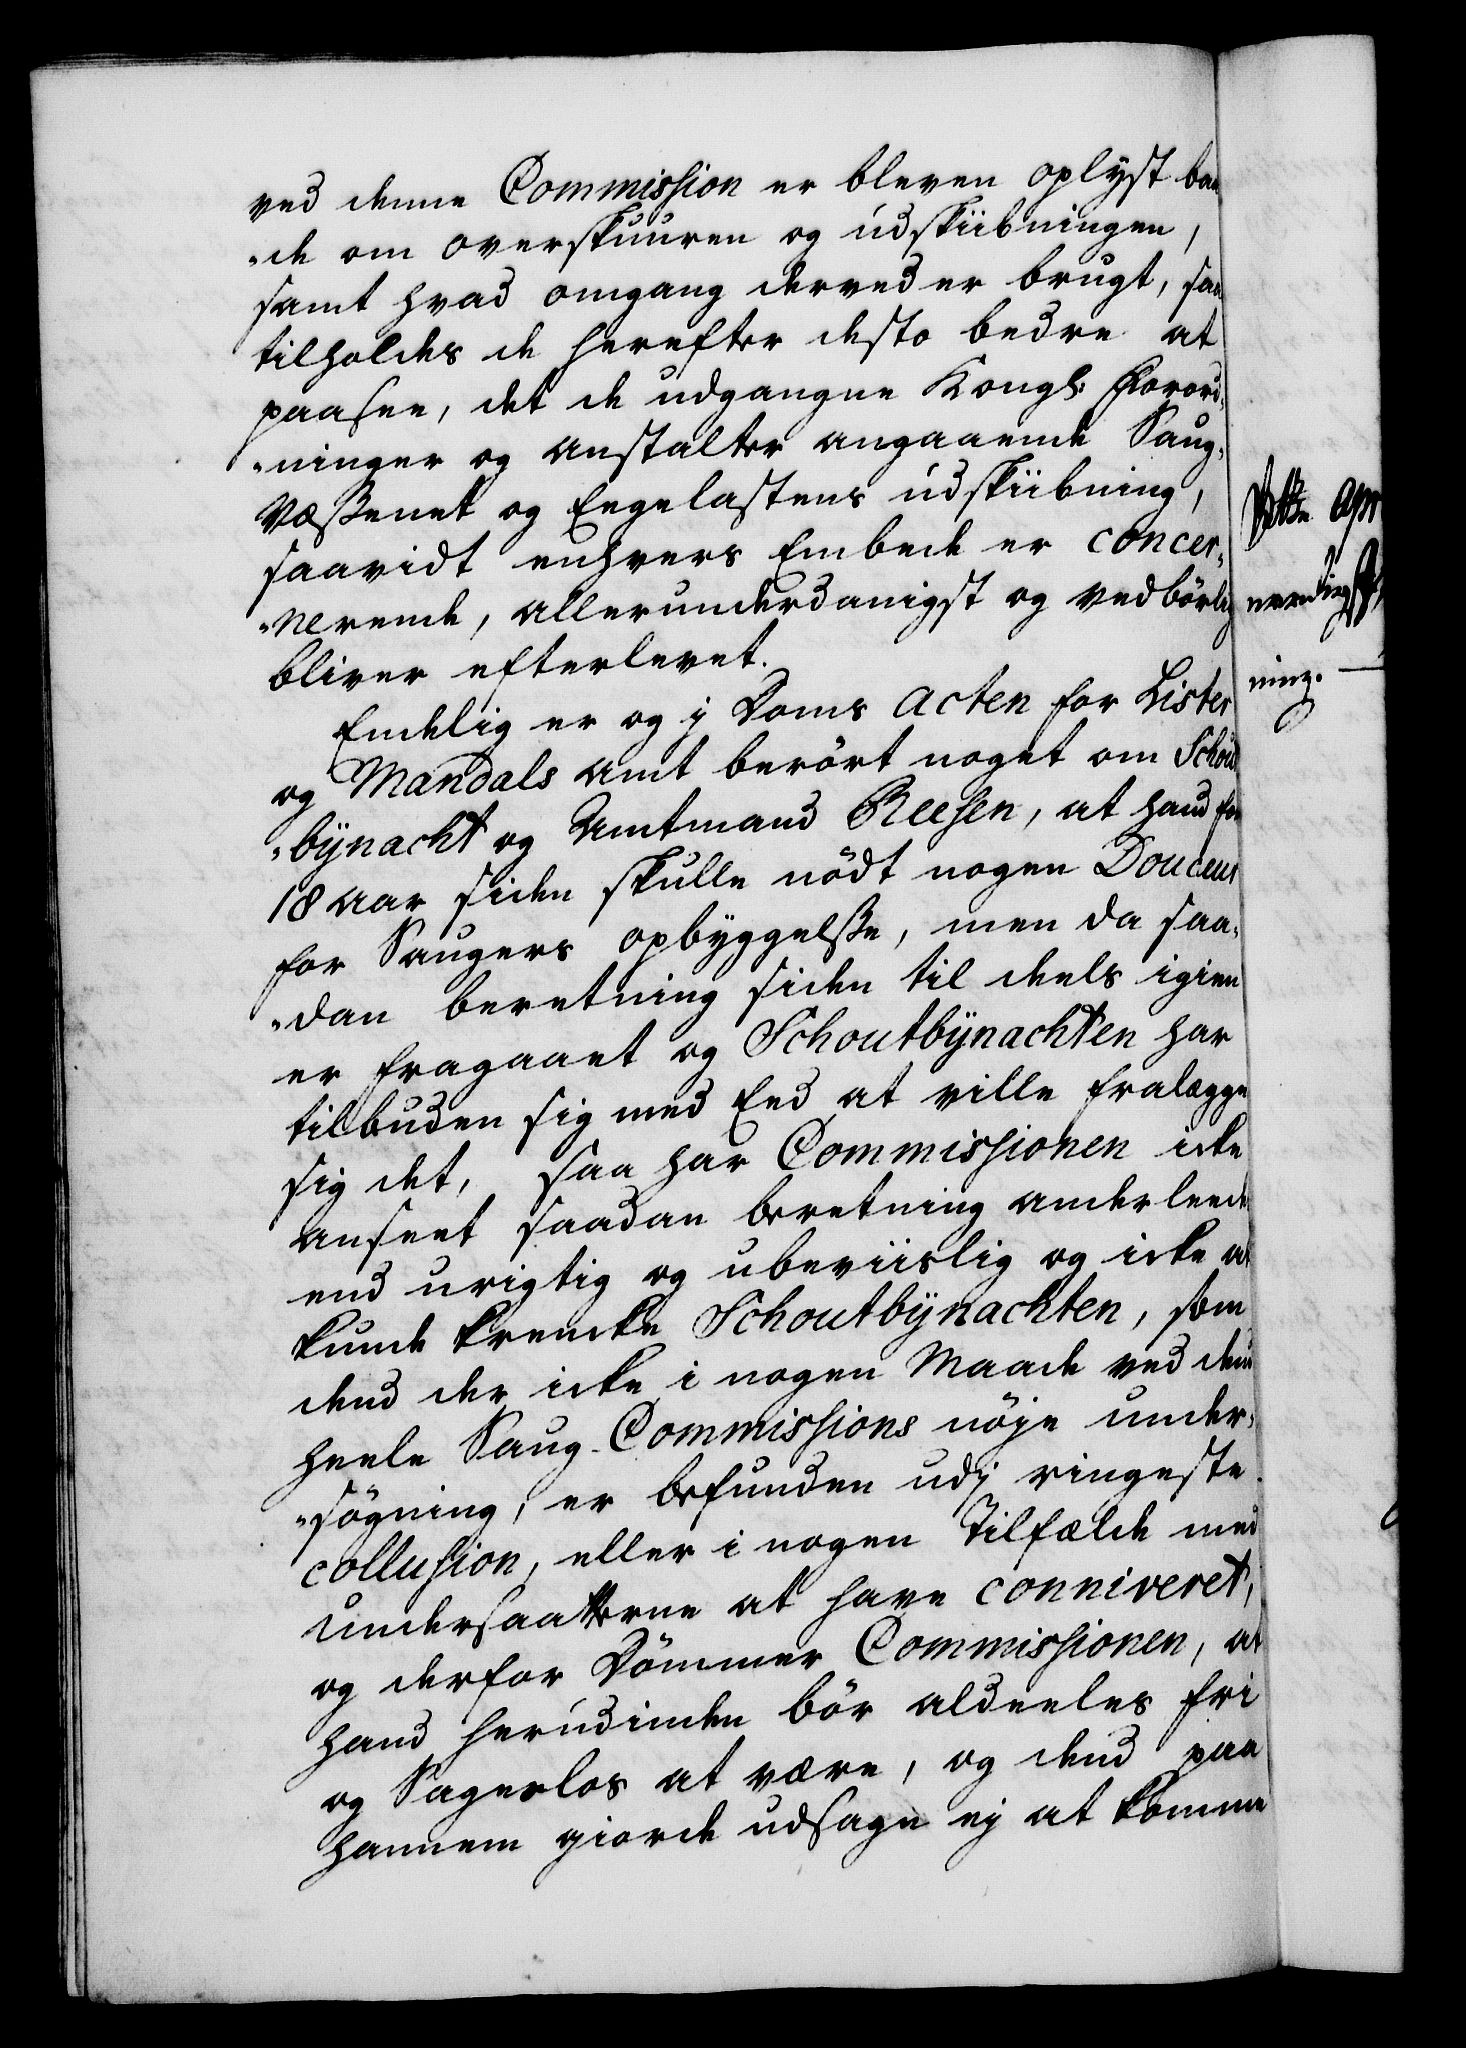 ved denne Commission er bleven oplyst baa
"de om overskuuren og udskiibningen,
samt hvad omgang derved er brugt, saa
tilholdes de herefter desto bedre at
paasee, det de udgangne Kongl: Forord,
"ninger og anstalter angaaende Saug,
Væßenet og Engelastens udskiibning,
saavidt enhvers Embede er concer,
"nerende, allerunderdanigst og vedbørlig
bliver efterlevet.
Endelig er og j Doms acten for Lister
og Mandals amt berørt noget om Schout
"bÿnacht og Amtmand Reesen, at hand for
18 aar siden skulle nødt nogen Douceur
for Saugers opbyggelße, men da saa,
"dan beretning siden til deels igien
er fragaaet og Schoutbÿnachten har
tilbuden sig med Eed at ville fralægge
sig det, saa har Commissionen icke
anseet saadan beretning anderleed
end urigtig og ubeviislig og icke at
kunde krencke Schoutbÿnachten, som
dend der icke i nogen Maade ved dend
heele Saug-Commissions nøje under,
"søgning, er befunden udj ringeste
collusion, eller i nogen Tilfælde med
undersaatterne at have conniveret,
og derfor Dømmer Commissionen, at
hand herudinden bør aldeeles frj
og Sagesløs at være, og dend paa
hannem giorde udsagn ej at komme
ning.